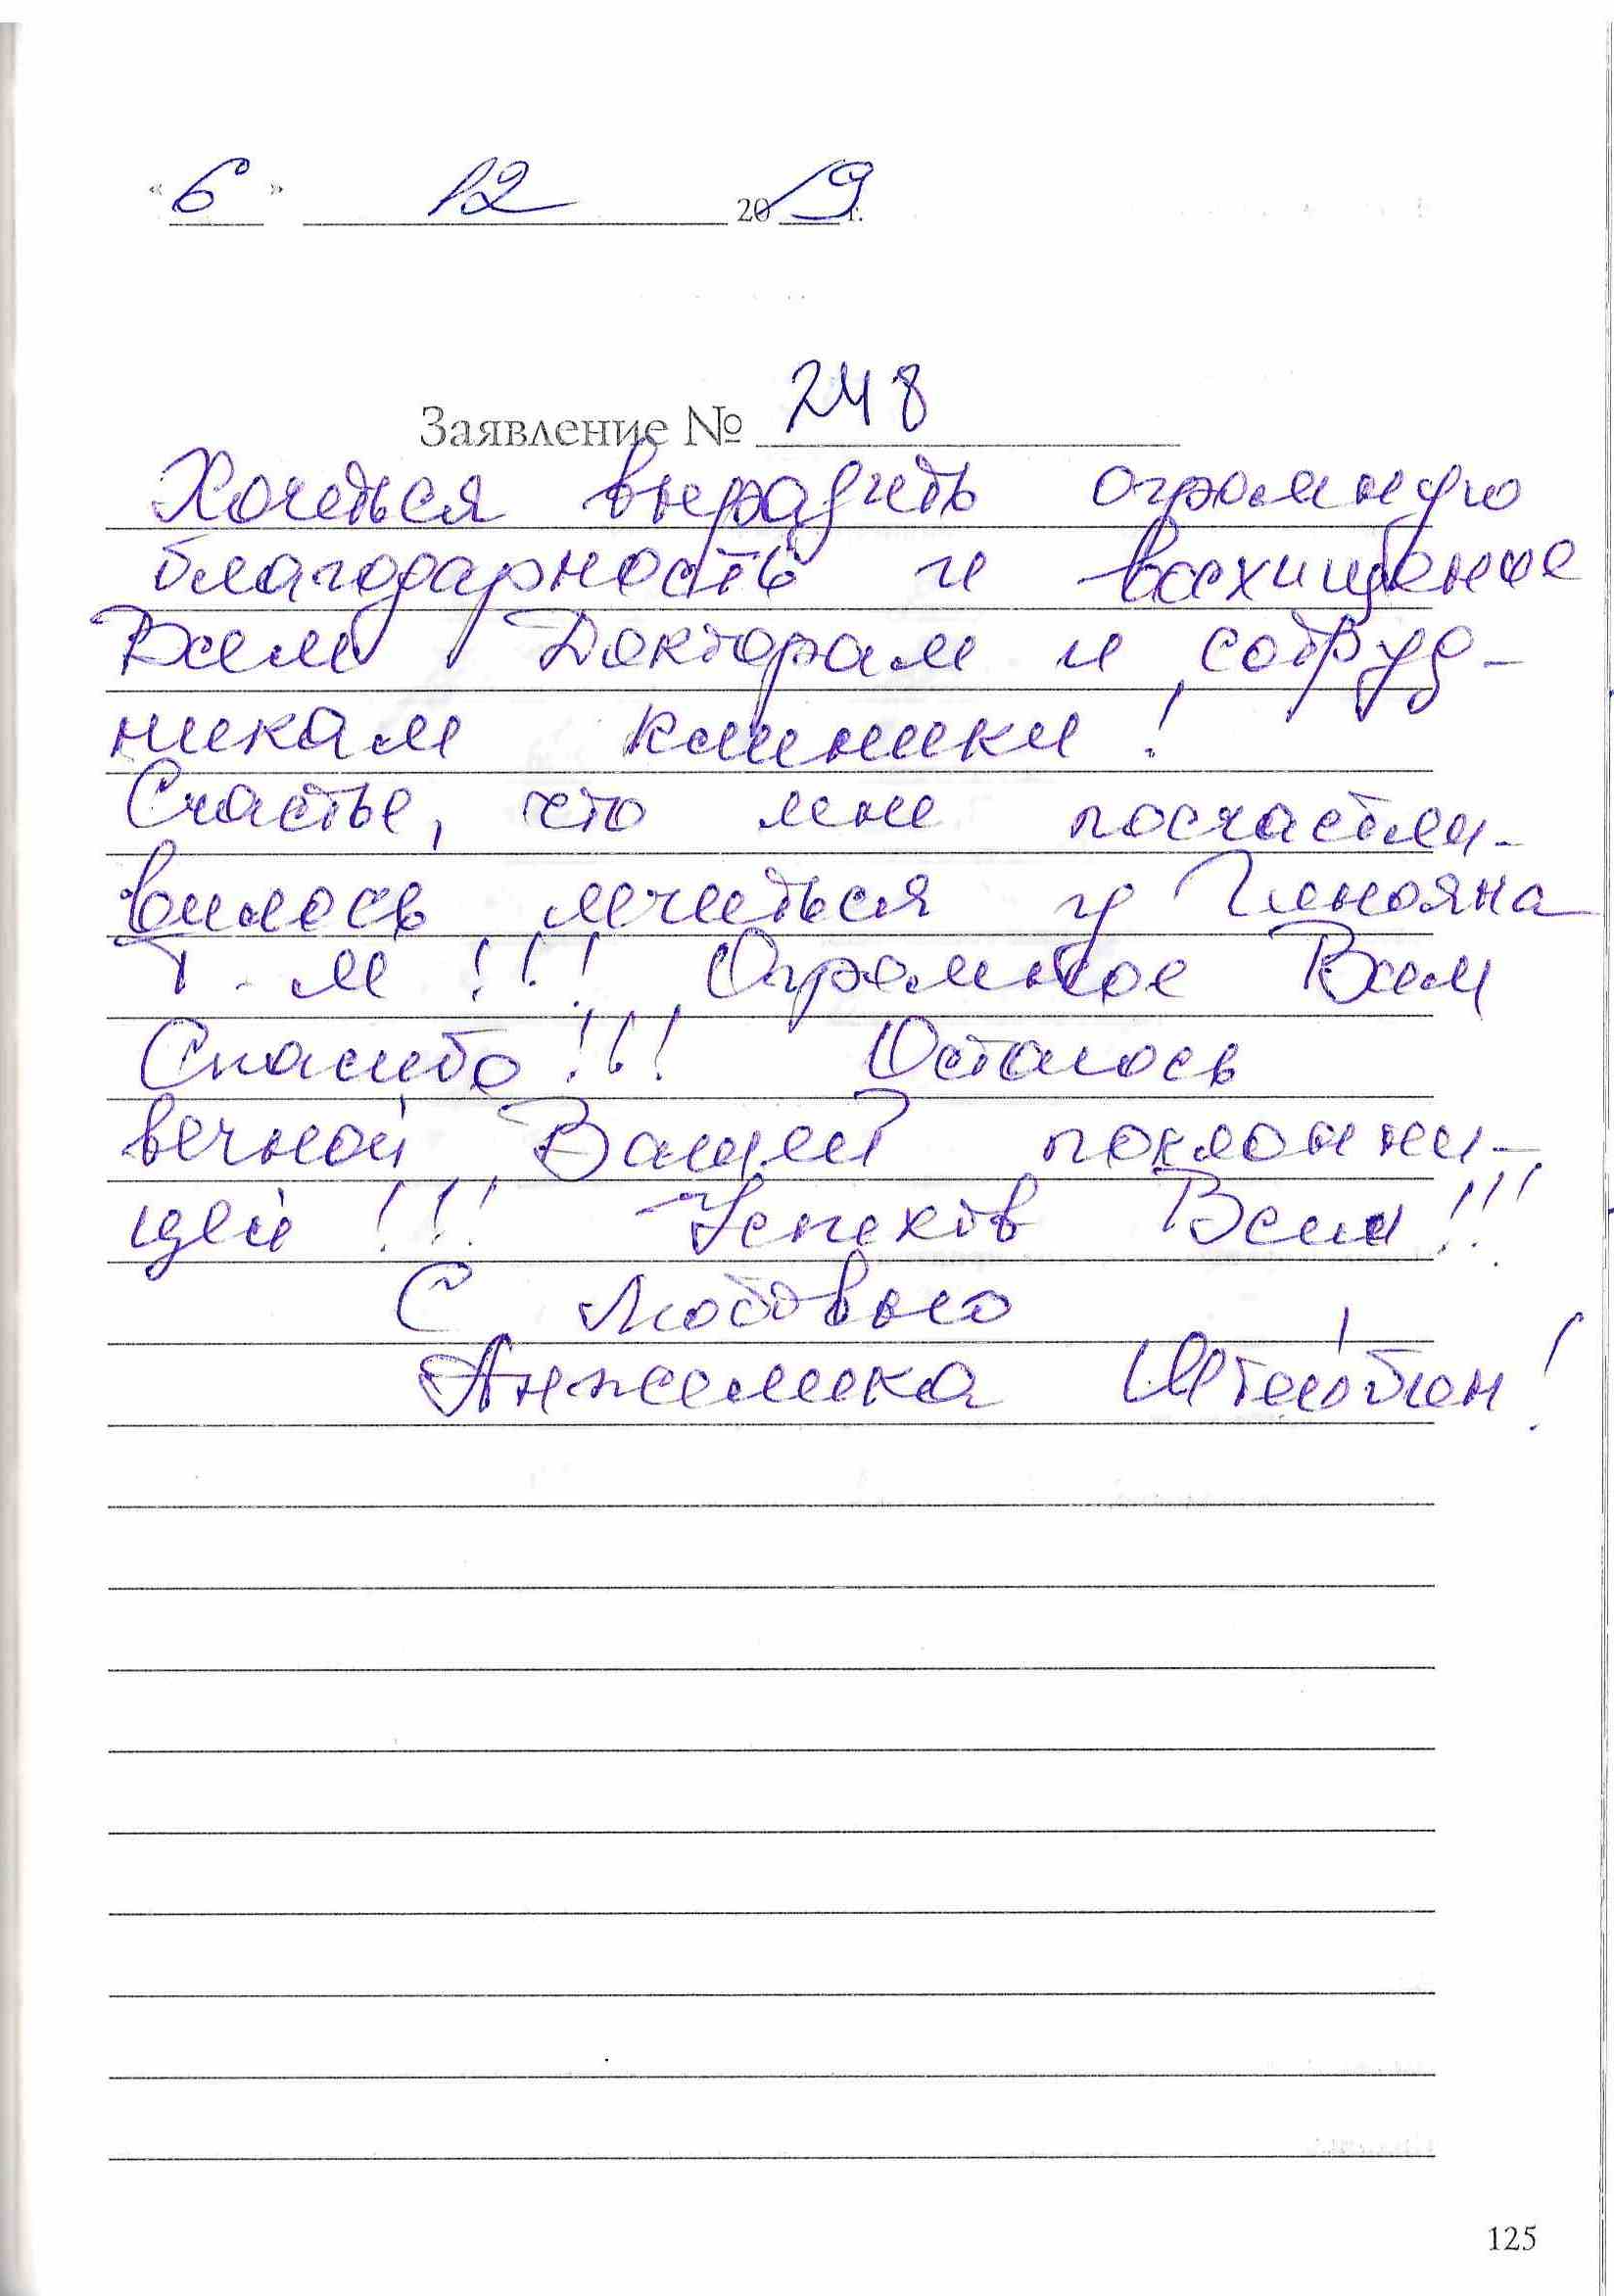 « 6 » 12 2019 г.
Заявление № 248
Хочеться выразить огромную
благодарность и восхищение
Всем Докторам и сотруд-
никам клиники!
Счастье, что мне посчастли-
вилось лечиться у Гинояна
Т. М!!! Огромное Вам
Спасибо!!! Остаюсь
вечной Вашей поклонни-
цей!!! Успехов Всем!!!
С Любовью
Анжелика
125